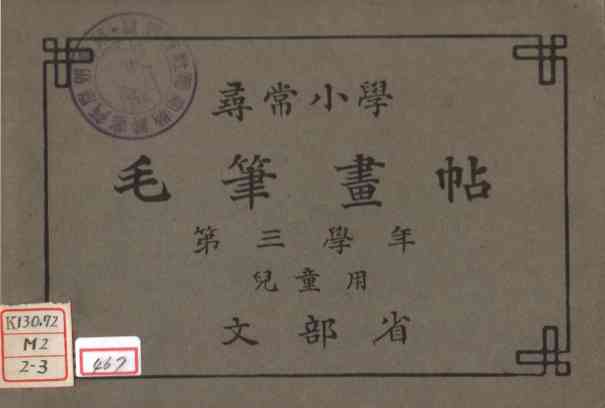 尋常小學
毛筆畫帖
第三學年
兒童用
文部省
K130.72
M2
2-3
467